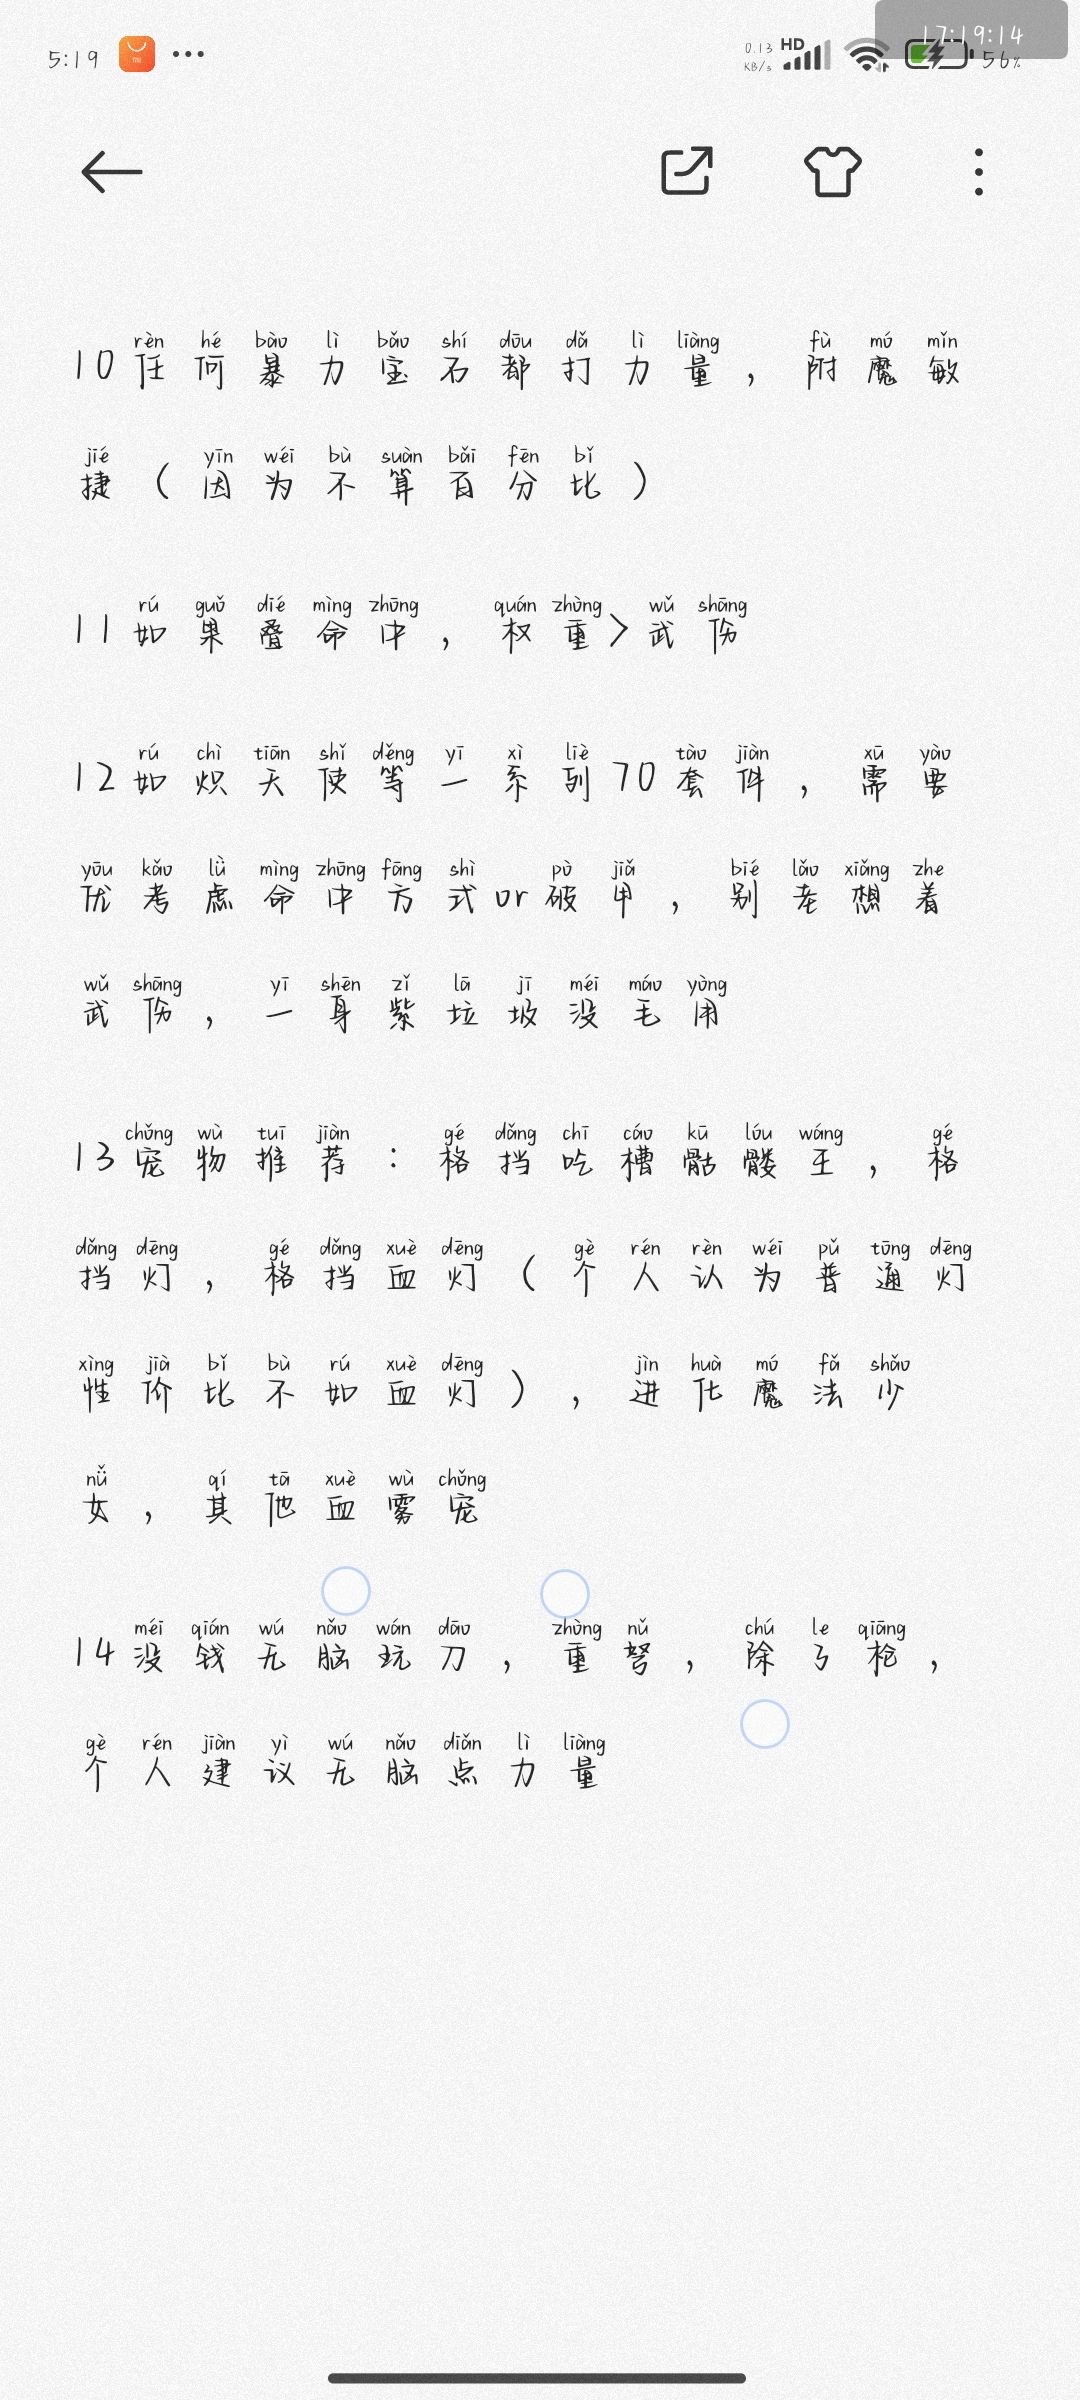 5:19
0.13 KB/s
HD
17:19:14
56%
rèn hé bào lì bǎo shí dōu dǎ lì liàng fù mó mǐn
10任何暴力宝石都打力量，附魔敏
jié yīn wéi bù suàn bǎi fēn bǐ
捷（因为不算百分比）
rú guǒ dié mìng zhōng quán zhòng wǔ shāng
11如果叠命中，权重>武伤
rú chì tiān shǐ děng yī xì liè tào jiàn xū yào
12如炽天使等一系列70套件，需要
yōu kǎo lǜ mìng zhōng fāng shì pò jiǎ bié lǎo xiǎng zhe
优考虑命中方式or破甲，别老想着
wǔ shāng yī shēn zǐ lā jī méi máo yòng
武伤，一身紫垃圾没毛用
chǒng wù tuī jiàn gé dǎng chī cáo kū lóu wáng gé
13宠物推荐：格挡吃槽骷髅王，格
dǎng dēng gé dǎng xuè dēng gè rén rèn wéi pǔ tōng dēng
挡灯，格挡血灯（个人认为普通灯
xìng jià bǐ bù rú xuè dēng jìn huà mó fǎ shǎo
性价比不如血灯），进化魔法少
nǚ qí tā xuè wù chǒng
女，其他血雾宠
méi qián wú nǎo wán dāo zhòng nǔ chú le qiāng
14没钱无脑玩刀，重弩，除了枪，
gè rén jiàn yì wú nǎo diǎn lì liàng
个人建议无脑点力量